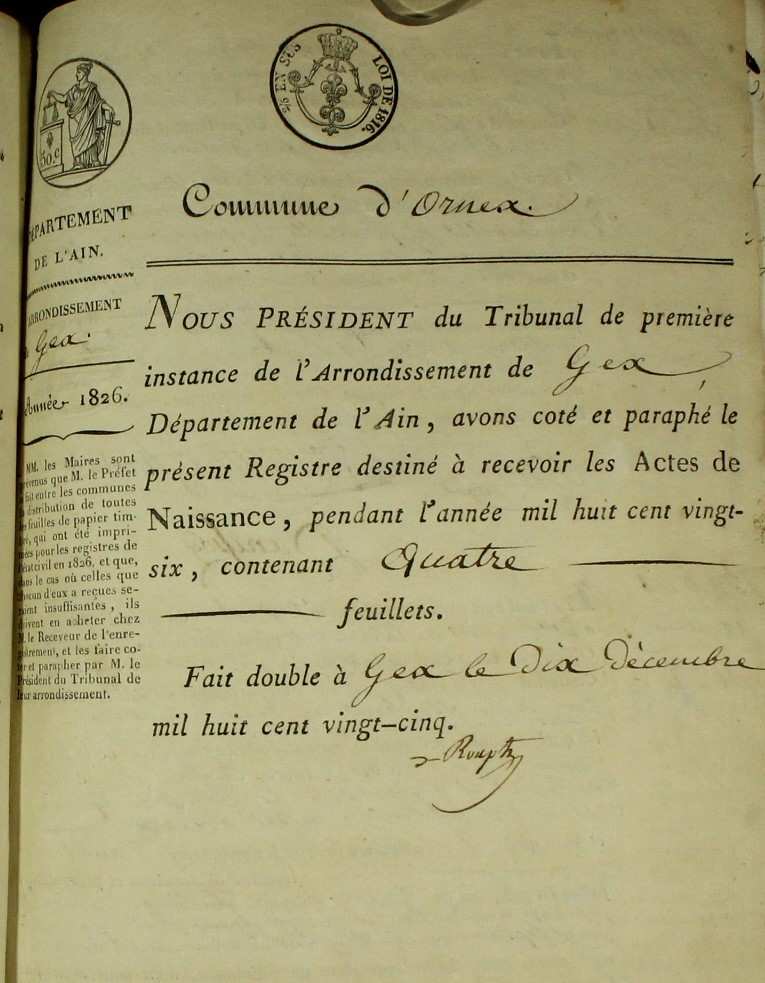 50.C
2/10 EN SUS LOI DE 1816.
Commune d'Ornex.
DÉPARTEMENT
DE L'AIN.
ARRONDISSEMENT
Gex.
Année 1826.
MM. les Maires sont
prévenus que M. le Préfet
fait entre les communes
distribution de toutes
feuilles de papier tim-
bré, qui ont été impri-
mées pour les registres de
l'état civil en 1826, et que,
dans le cas où celles que
chacun d'eux a reçues se-
raient insuffisantes, ils
doivent en acheter chez
M. le Receveur de l'enre-
gistrement, et les faire co-
ter et parapher par M. le
Président du Tribunal de
leur arrondissement.
NOUS PRÉSIDENT du Tribunal de première
instance de l'Arrondissement de Gex
Département de l'Ain, avons coté et paraphé le
présent Registre destiné à recevoir les Actes de
Naissance, pendant l'année mil huit cent vingt-
six, contenant Quatre
feuillets.
Fait double à Gex le Dix Décembre
mil huit cent vingt-cinq.